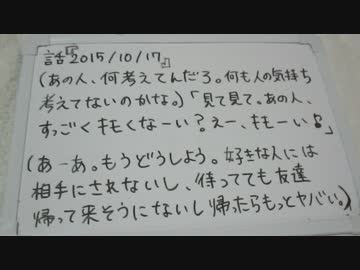 話『2015/10/17』
(あの人、何考えてんだろ。何も人の気持ち
考えてないのかな。)「見て見て。あの人、
すっごくキモくなーい？えー、キモーい♪」
(あーあ。もうどうしよう。好きな人には
相手にされないし、待ってても友達
帰って来そうにないし帰ったらもっとヤバい。)